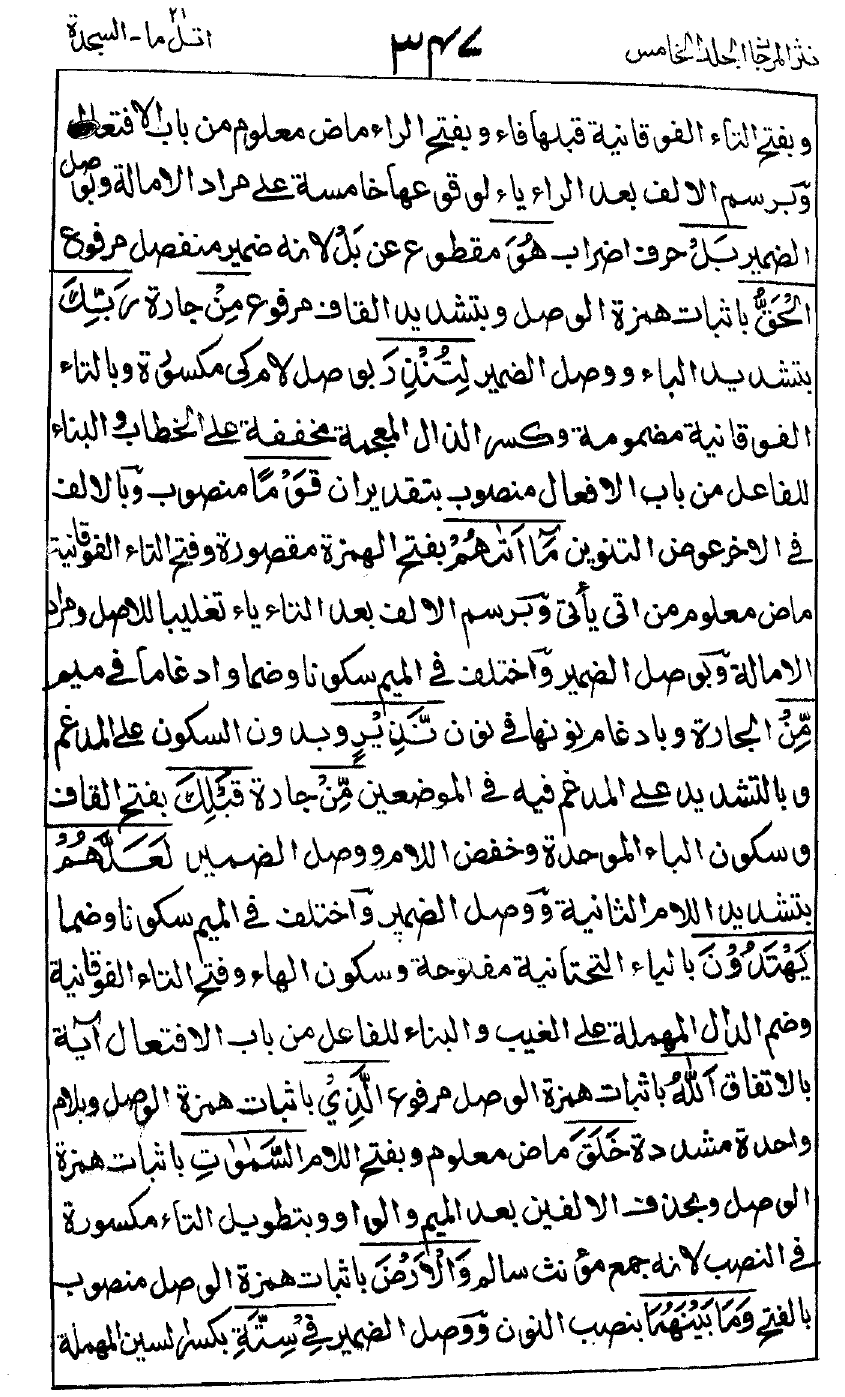 نثر المرجان الجلد الخامس ٣٤٧ اتل ما ٢١ - السجدة
وبفتح التاء الفوقانية قبلها فاء وبفتح الراء ماض معلوم من باب الافتعال
وَبرسم الالف بعد الراء ياء لوقوعها خامسة على مراد الامالة وبوصل
الضمير بَلْ حرف اضراب هُوَ مقطوع عن بَلْ لانه ضمير منفصل مرفوع
الْحَقُّ باثبات همزة الوصل وبتشديد القاف مرفوع مِنْ جادة رَبِّكَ
بتشديد الباء ووصل الضمير لِتُنْذِرَ بوصل لام كى مكسورة وبالتاء
الفوقانية مضمومة وكسر الذال المعجمة مخففة على الخطاب والبناء
للفاعل من باب الافعال منصوب بتقدير ان قَوْمًا منصوب وَبالالف
فى الاخر عوض التنوين مَّآ اَتٰىهُمْ بفتح الهمزة مقصورة وفتح التاء الفوقانية
ماض معلوم من اتى يأتى وَبرسم الالف بعد التاء ياء تغليبا للاصل ومراد
الامالة وَبوصل الضمير وَاختلف فى الميم سكونا وضما وادغاما فى ميم
مِّنْ الجارة وبادغام نونها فى نون نَّذِيْرٍ وبدون السكون على المدغم
وبالتشديد على المدغم فيه فى الموضعين مِّنْ جادة قَبْلِكَ بفتح القاف
وسكون الباء الموحدة وخفض اللام ووصل الضمير لَعَلَّهُمْ
بتشديد اللام الثانية وَوصل الضمير وَاختلف فى الميم سكونا وضما
يَهْتَدُوْنَ بالياء التحتانية مفتوحة وسكون الهاء وفتح التاء الفوقانية
وضم الدال المهملة على الغيب والبناء للفاعل من باب الافتعال آية
بالاتفاق اَللّٰهُ باثبات همزة الوصل مرفوع الَّذِيْ باثبات همزة الوصل وبلام
واحدة مشددة خَلَقَ ماض معلوم وبفتح اللام السَّمٰوٰتِ باثبات همزة
الوصل وبحذف الالفين بعد الميم والواو وبتطويل التاء مكسورة
فى النصب لانه جمع مؤنث سالم وَالْاَرْضَ باثبات همزة الوصل منصوب
بالفتح وَمَا بَيْنَهُمَا بنصب النون وَوصل الضمير فِيْ سِتَّةِ بكسر السين المهملة